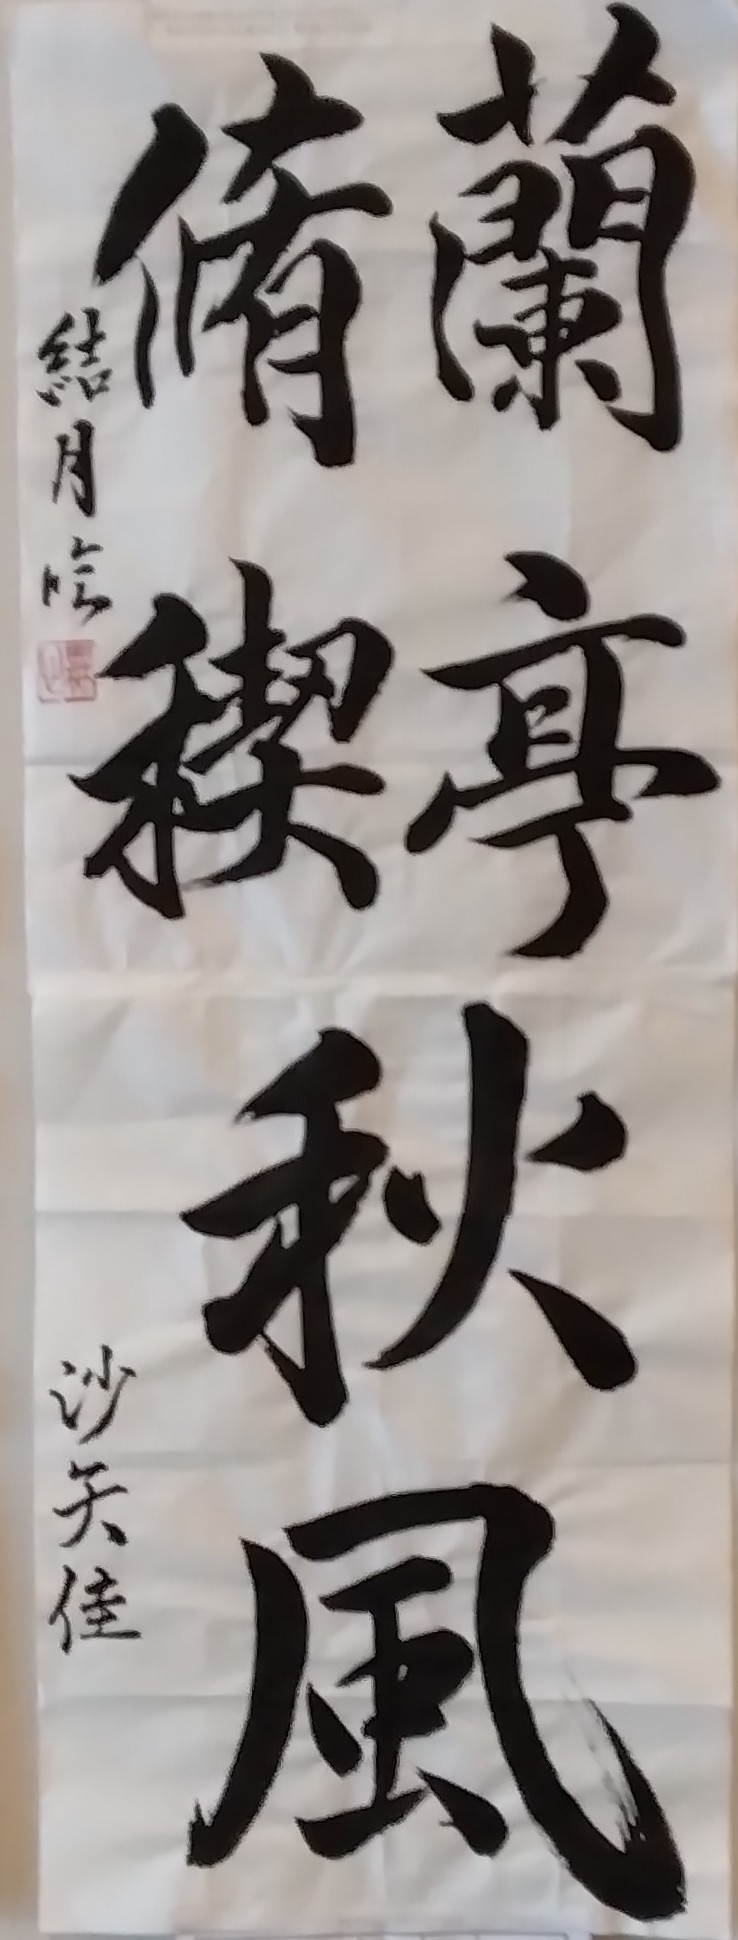 蘭亭
脩稧
秋風
結月吟
沙矢佳